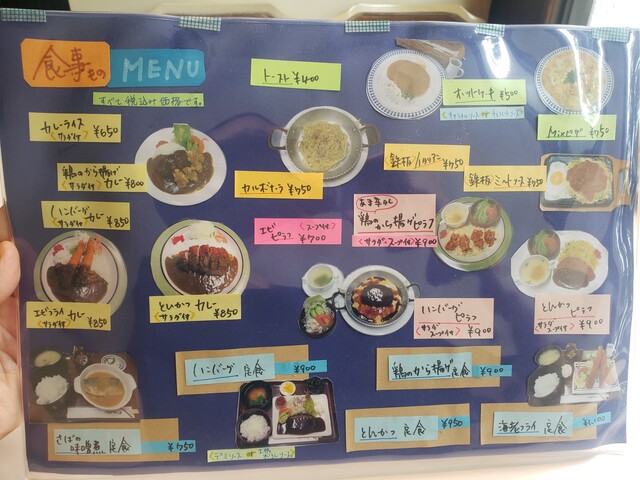 食事もの MENU
すべて税込み価格です。
トースト ¥400
ホットケーキ ¥500
カレーライス
(サラダ付) ¥650
鶏のから揚げ
(サラダ付) カレー ¥800
カルボナーラ ¥750
鉄板ナポリタン ¥750
鉄板ミートソース ¥750
Mixピザ ¥750
ハンバーグ
(サラダ付) カレー ¥850
エビ
ピラフ (スープ付) ¥700
鶏のから揚げピラフ
(サラダ・スープ付) ¥900
エビフライ
(サラダ付) カレー ¥850
とんかつ カレー
(サラダ付) ¥850
ハンバーグ
ピラフ
(サラダ スープ付) ¥900
とんかつ
ピラフ
(サラダ スープ付) ¥900
ハンバーグ 定食 ¥900
鶏のから揚げ 定食 ¥900
さばの
味噌煮 定食 ¥750
とんかつ 定食 ¥950
海老フライ 定食 ¥1,100